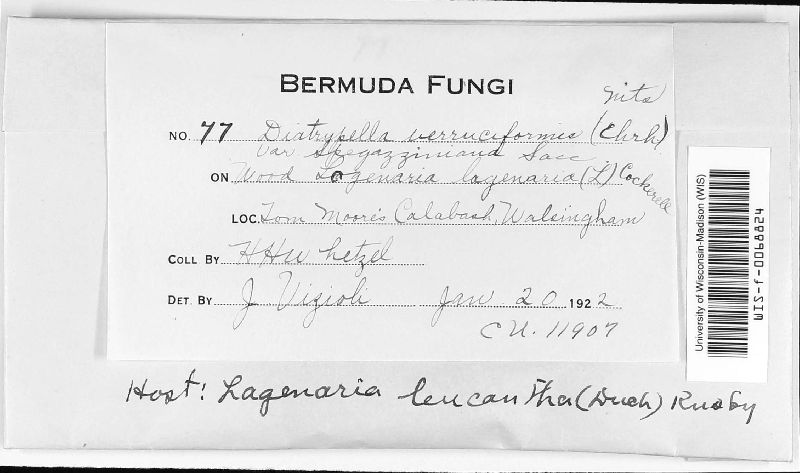 BERMUDA FUNGI
Nits
NO. 77 Diatrypella verruciformis (Ehrh)
var Spegazziniana Sacc.
ON Wood Lagenaria lagenaria (L) Cockerell
LOC. Tom Moore's Calabash, Walsingham
COLL BY HHWhetzel
DET. BY J Vizioli Jan 20 1922
CU. 11907
Host: Lagenaria leucantha (Duch) Rusby
University of Wisconsin-Madison (WIS)
WIS-f-0068824